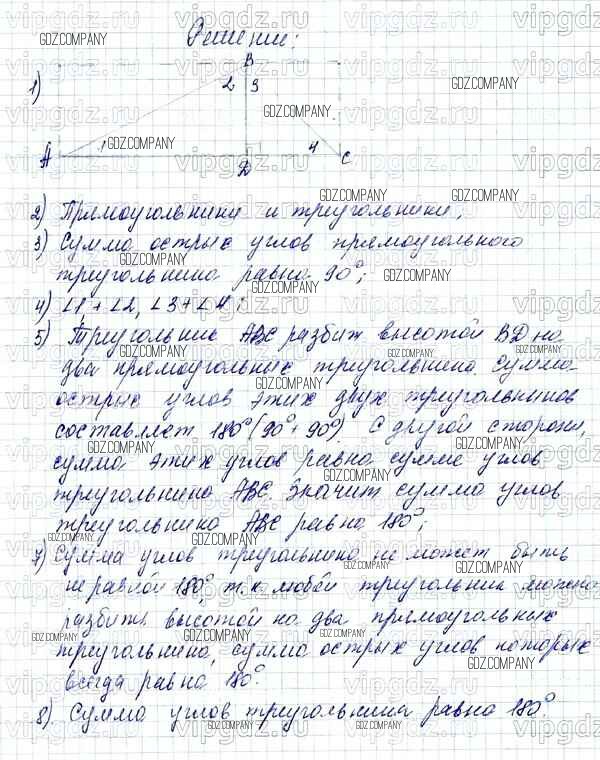 Решение:
B
1) 2 3
A 1 D 4 C
2) Прямоугольники и треугольники;
3) Сумма острых углов прямоугольного
треугольника равна 90°;
4) ∠1+∠2, ∠3+∠4;
5) Треугольник ABC разбит высотой BD на
два прямоугольных треугольника. Сумма
острых углов этих двух треугольников
составляет 180° (90°+90°). С другой стороны,
сумма этих углов равна сумме углов
треугольника ABC. Значит сумма углов
треугольника ABC равна 180°;
7) Сумма углов треугольника не может быть
не равной 180°, т.к. любой треугольник можно
разбить высотой на два прямоугольных
треугольника, сумма острых углов которых
всегда равна 180°.
8). Сумма углов треугольника равна 180°.